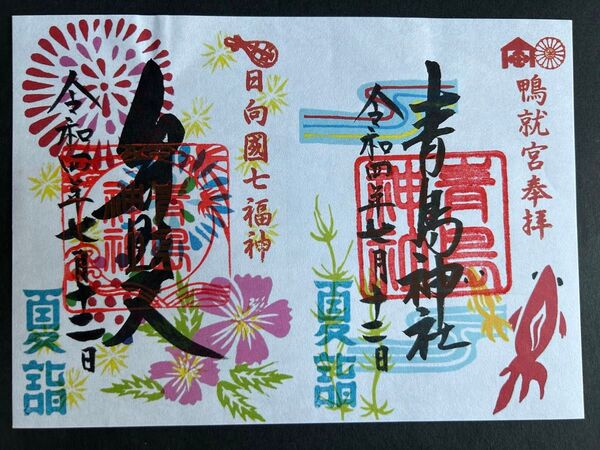 鴨就宮奉拝
青島神社
令和四年七月十二日
夏詣
青島
神社
日向國七福神
弁財天
令和四年七月十二日
夏詣